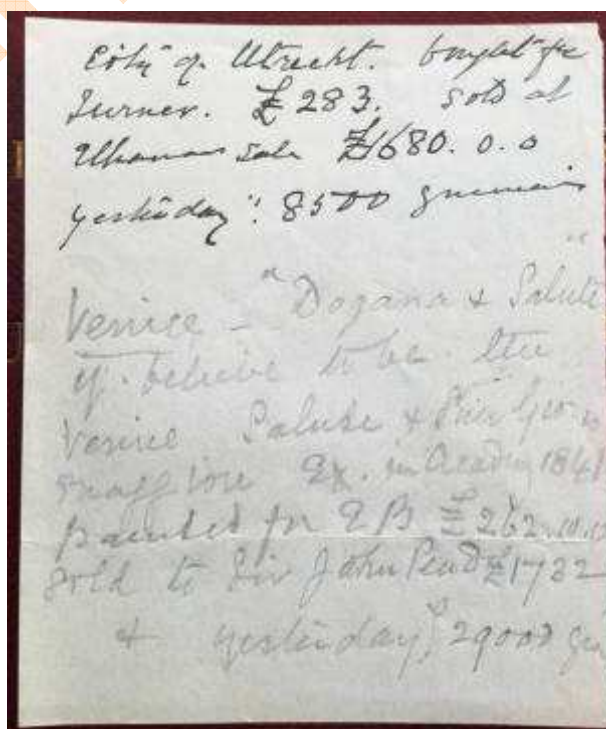 City of Utrecht. bought for
Turner. £283. sold at
sale £1680. 0. 0
yesterday". 8500 guineas
Venice - "Dogana & Salute"
I believe to be the
Venice Salute &
Ex. in Academy 1841
painted for EB £262.10.0
sold to Sir John Pend £1732
& yesterday, 29000 gs